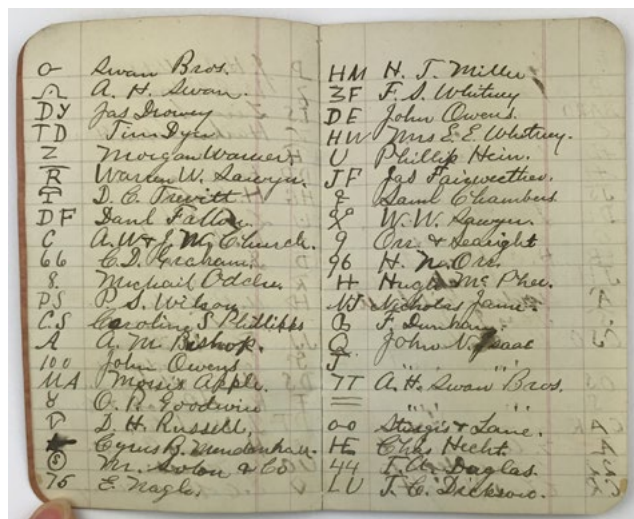 Swan Bros.
A. H. Swan.
DY Jas Drowey
TD Tim Dyer
Z Morgan Warner
R Warren W. Sawyer.
T D. C. Trevitt
DF Danl Fallon
C A. W & J. M. Church.
66 C. D. Graham.
8. Michail
PS P. S. Wilson
C.S Caroline S Phillipps
A A. M. Bishop.
100 John Owens
MA Apple.
O. P. Goodwin
D. H. Russell,
Cyrus B. Mendenhall
S M. Solon & Co
76 E. Nagle.
HM H. J. Miller
3F F. S. Whitney
DE John Owens.
HW Mrs E. E. Whitney.
U Phillip Hein.
JF Jas Fairweather.
Saml Chambers
W. W. Sawyer.
9 Orr & Searight
96 H. N. Orr.
H Hugh Mc Phee.
NJ Nicholas
F. Dunham
Q John N. Isaac
J " " "
7T A. H. Swan Bros.
= " " "
Sturgis & Lane.
Chas Hecht.
44 Daglas.
LU J. C. Dickson.